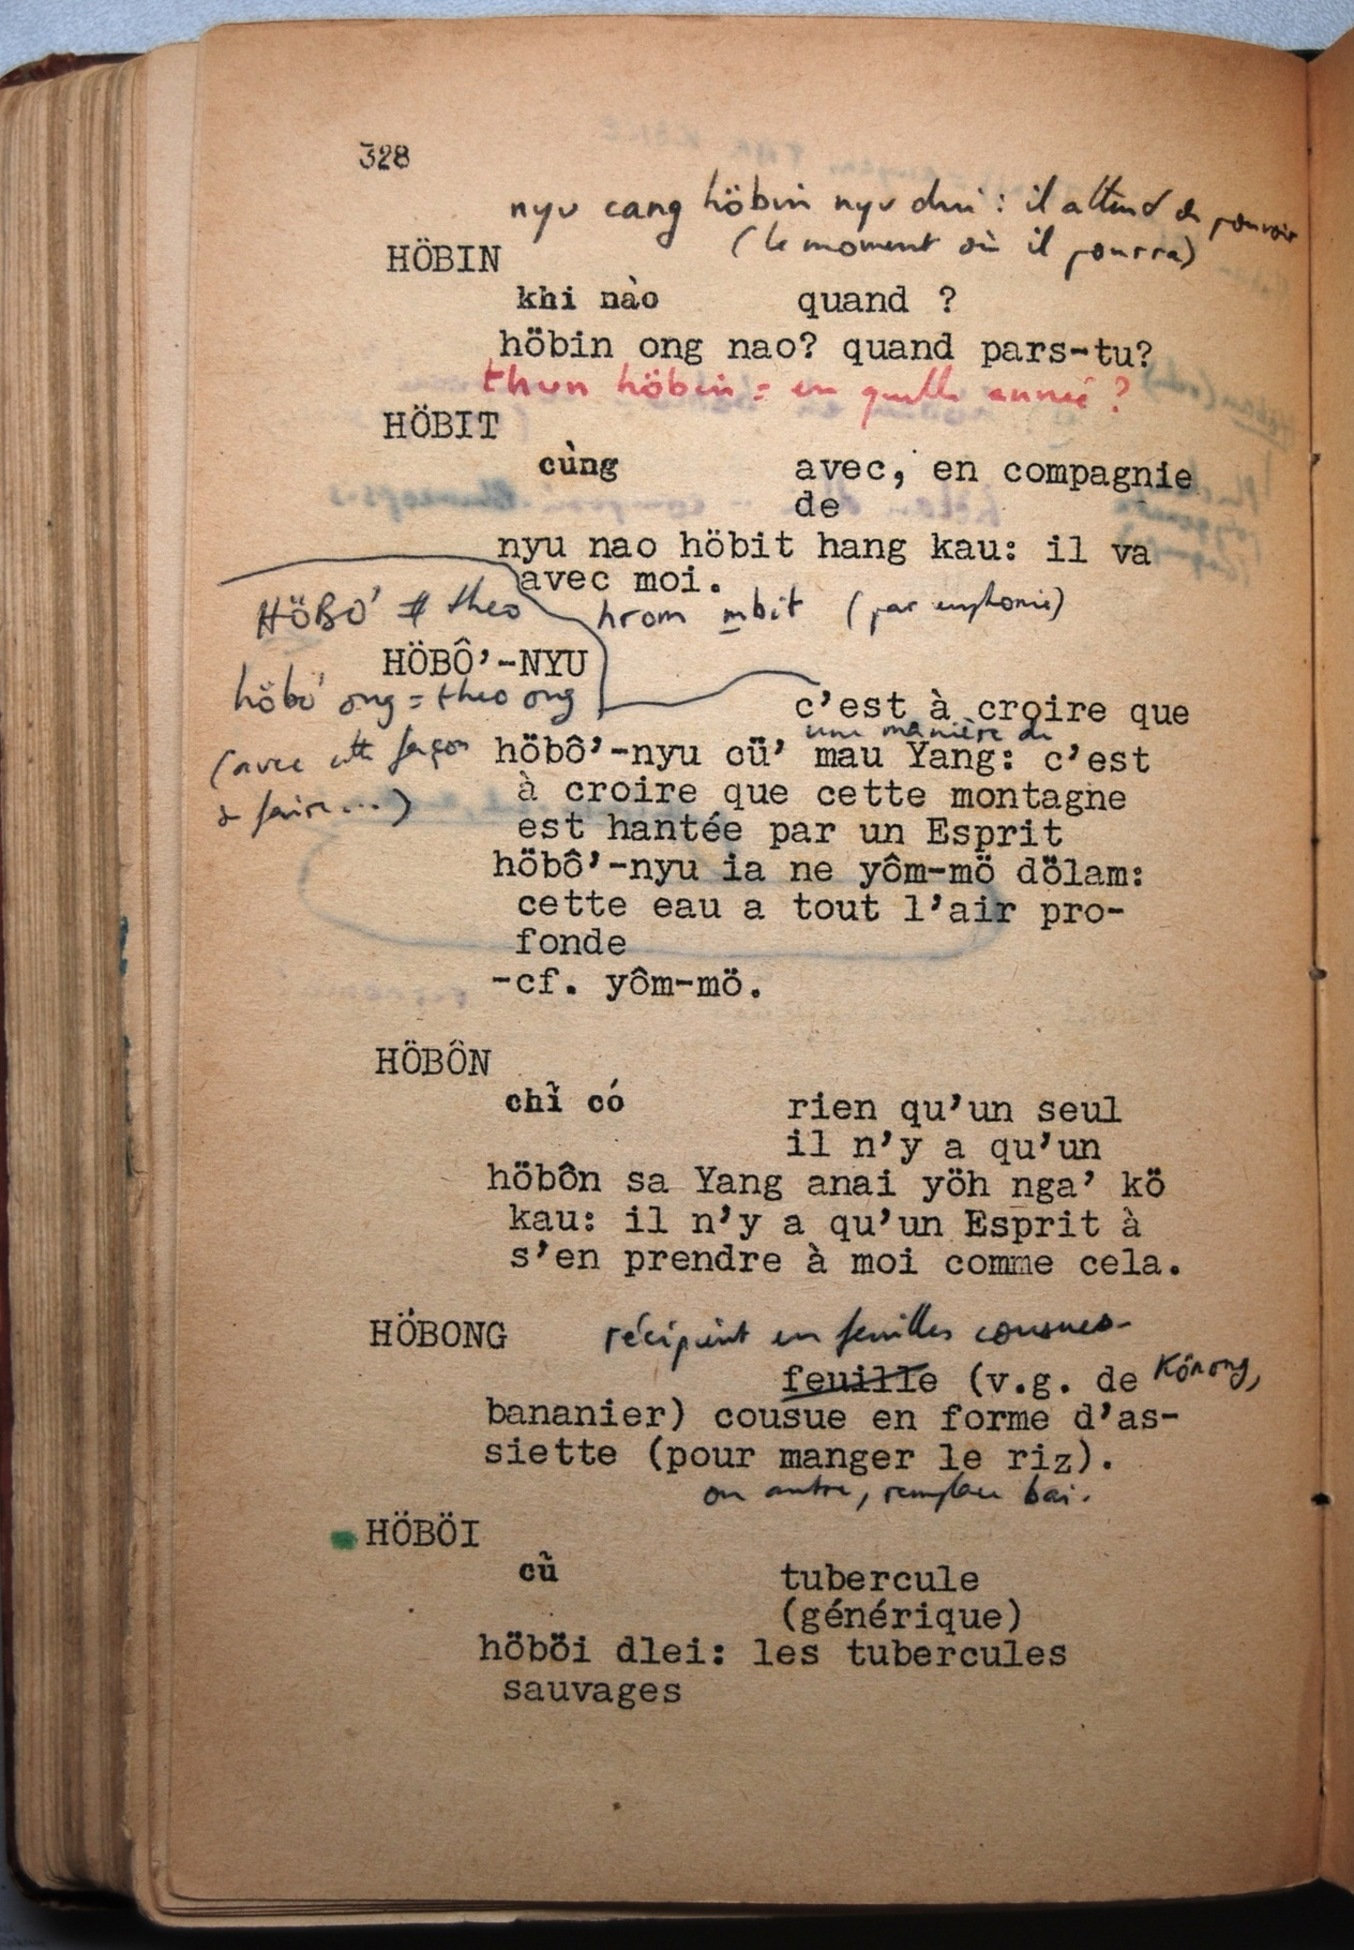 328
nyu cang höbin nyu dui : il attend de pouvoir
(le moment où il pourra)
HÖBIN
khi nào quand ?
höbin ong nao? quand pars-tu?
thun höbin = en quelle année ?
HÖBIT
cùng avec, en compagnie
de
nyu nao höbit hang kau: il va
avec moi.
HÖBO' # theo
hrom mbit (par euphonie)
HÖBÔ'-NYU
höbo' ong = theo ong
c'est à croire que
une manière de
(avec cette façon
de faire...)
höbô'-nyu cü' mau Yang: c'est
à croire que cette montagne
est hantée par un Esprit
höbô'-nyu ia ne yôm-mö dölam:
cette eau a tout l'air pro-
fonde
-cf. yôm-mö.
HÖBÔN
chỉ có rien qu'un seul
il n'y a qu'un
höbôn sa Yang anai yöh nga' kö
kau: il n'y a qu'un Esprit à
s'en prendre à moi comme cela.
HÖBONG récipient en feuilles cousues
feuille (v.g. de Körong,
bananier) cousue en forme d'as-
siette (pour manger le riz).
ou autre, remplace bai.
HÖBÖI
cũ tubercule
(générique)
höböi dlei: les tubercules
sauvages